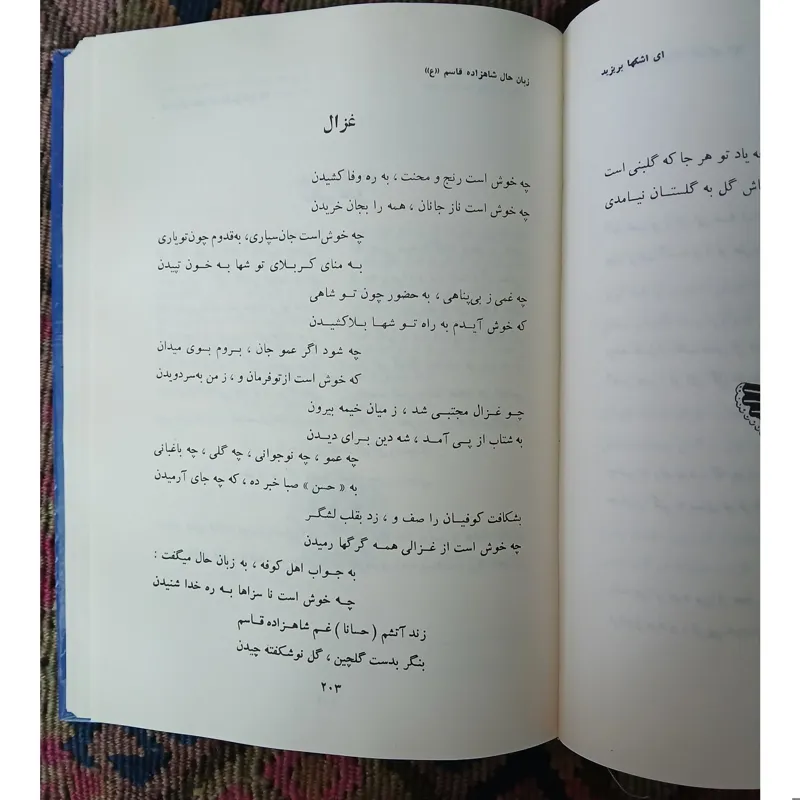 زبان حال شاهزاده قاسم «ع»
غزال
چه خوش است رنج و محنت ، به ره وفا کشیدن
چه خوش است ناز جانان ، همه را بجان خریدن
چه خوش است جان‌سپاری، به‌قدوم چون‌تویاری
به منای کربلای تو شها به خون تپیدن
چه غمی ز بی‌پناهی ، به حضور چون تو شاهی
که خوش آیدم به راه تو شها بلاکشیدن
چه شود اگر عمو جان ، بروم بوی میدان
که خوش است ازتوفرمان و ، ز من به‌سردویدن
چو غزال مجتبی شد ، ز میان خیمه بیرون
به شتاب از پی آمد ، شه دین برای دیدن
چه عمو ، چه نوجوانی ، چه گلی ، چه باغبانی
به « حسن » صبا خبر ده ، که چه جای آرمیدن
بشکافت کوفیان را صف و ، زد بقلب لشگر
چه خوش است از غزالی همه گرگها رمیدن
به جواب اهل کوفه ، به زبان حال میگفت :
چه خوش است نا سزاها به ره خدا شنیدن
زند آتشم ( حسانا ) غم شاهزاده قاسم
بنگر بدست گلچین ، گل نوشکفته چیدن
۲۰۳
ای اشکها بریزید
یاد تو هر جا که گلبنی است
گل به گلستان نیامدی